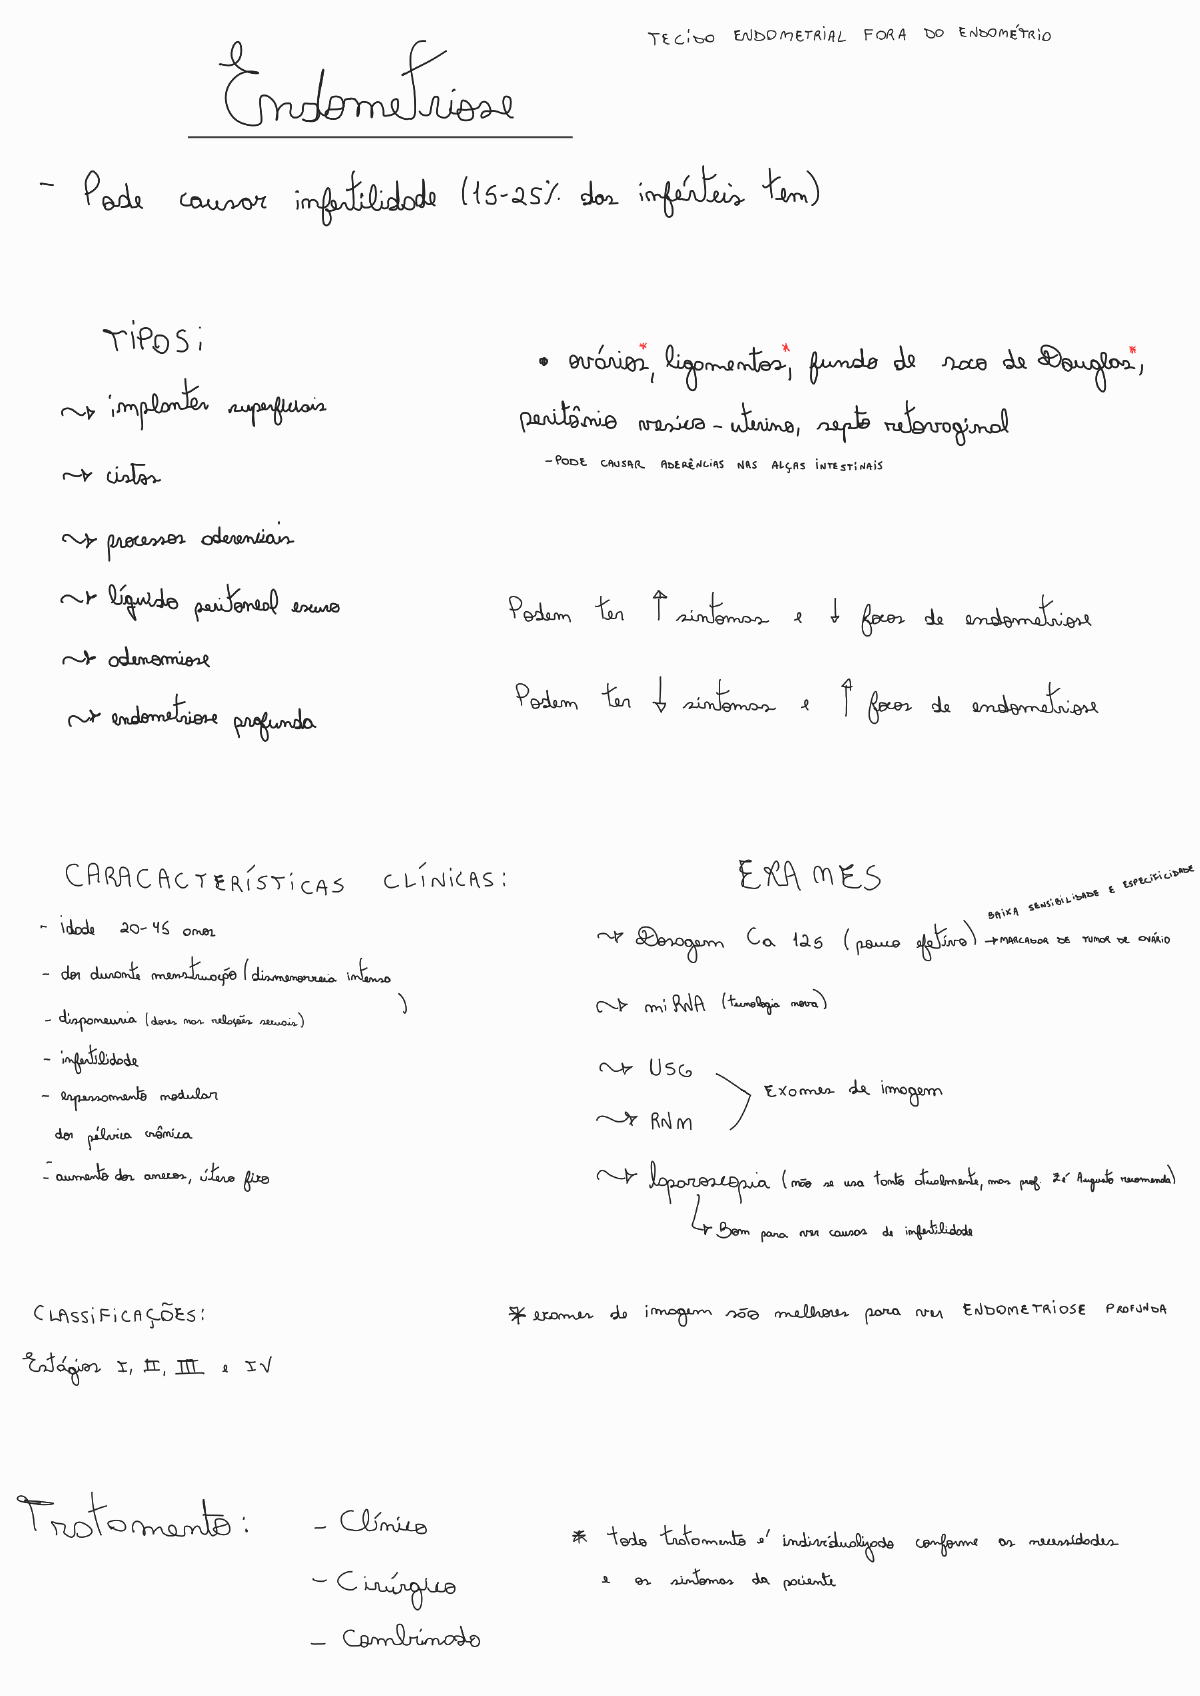 TECIDO ENDOMETRIAL FORA DO ENDOMÉTRIO
Endometriose
- Pode causar infertilidade (15-25% das inférteis tem)
TIPOS:
~> implantes superficiais
~> cistos
~> processos aderenciais
~> líquido peritoneal escuro
~> adenomiose
~> endometriose profunda
• ovários*, ligamentos*, fundo de saco de Douglas*,
peritônio vesico-uterino, septo retovaginal
- PODE CAUSAR ADERÊNCIAS NAS ALÇAS INTESTINAIS
Podem ter ↑ sintomas e ↓ focos de endometriose
Podem ter ↓ sintomas e ↑ focos de endometriose
CARACACTERÍSTICAS CLÍNICAS:
- idade 20-45 anos
- dor durante menstruação (dismenorreia intensa
)
- dispareunia (dores nas relações sexuais)
- infertilidade
- espessamento nodular
dor pélvica crônica
- aumento dos anexos, útero fixo
EXAMES
~> Dosagem Ca 125 (pouco efetivo) → MARCADOR DE TUMOR DE OVÁRIO
BAIXA SENSIBILIDADE E ESPECIFICIDADE
~> miRNA (tecnologia nova)
~> USG
Exames de imagem
~> RNM
~> laparoscopia (não se usa tanto atualmente, mas prof. Zé Augusto recomenda)
↳ Bom para ver causas de infertilidade
* exames de imagem são melhores para ver ENDOMETRIOSE PROFUNDA
CLASSIFICAÇÕES:
Estágios I, II, III e IV
Tratamento:
- Clínico
- Cirúrgico
- Combinado
* todo tratamento é individualizado conforme as necessidades
e os sintomas da paciente